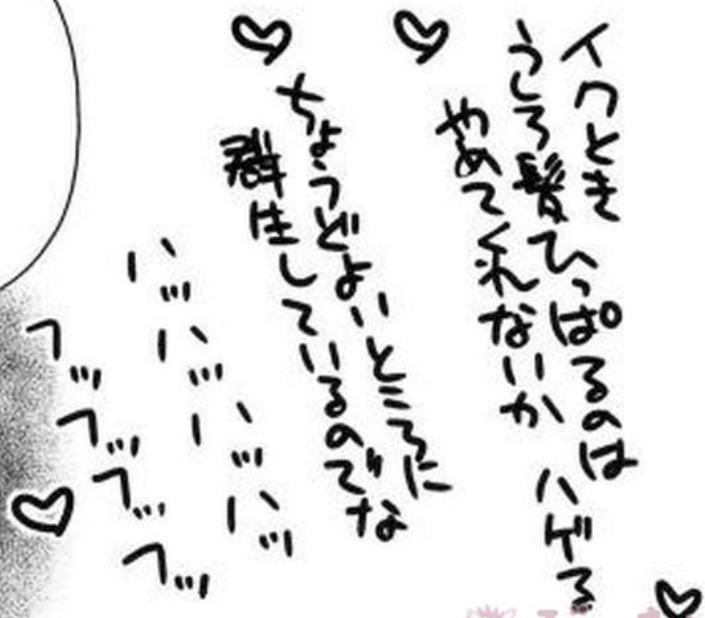 イクとき
うしろ髪ひっぱるのは
やめてくれないか ハゲる
ちょうどよいところに
群生しているのでな
ハッ ハッ ハッ ハッ
フッ フッ フッ フッ